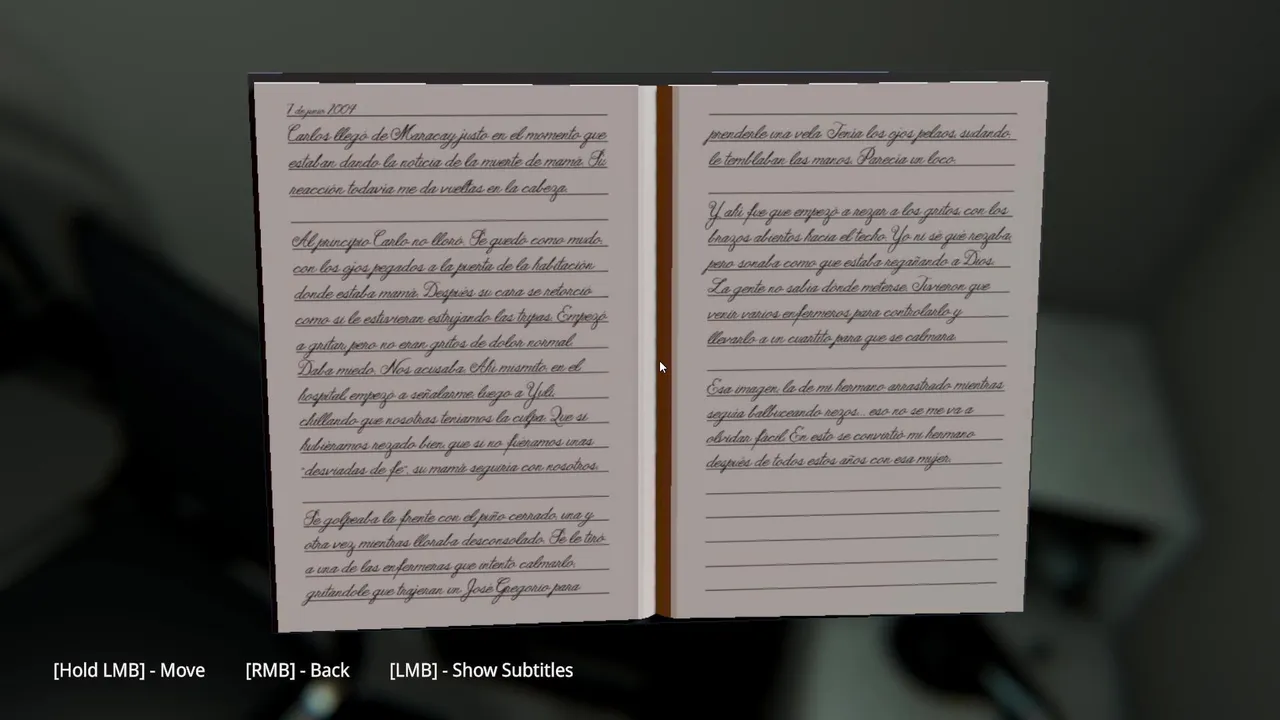 7 de junio 2004
Carlos llegó de Maracay justo en el momento que
estaban dando la noticia de la muerte de mamá. Su
reacción todavía me da vueltas en la cabeza.
Al principio Carlo no lloró. Se quedó como mudo,
con los ojos pegados a la puerta de la habitación
donde estaba mamá. Después su cara se retorció
como si le estuvieran estrujando las tripas. Empezó
a gritar, pero no eran gritos de dolor normal.
Daba miedo. Nos acusaba. Ahí mismito, en el
hospital, empezó a señalarme, luego a Yuli,
chillando que nosotras teníamos la culpa. Que si
hubiéramos rezado bien, que si no fuéramos unas
"desviadas de fe", su mamá seguiría con nosotros.
Se golpeaba la frente con el puño cerrado, una y
otra vez mientras lloraba desconsolado. Se le tiró
a una de las enfermeras que intentó calmarlo,
gritándole que trajeran un José Gregorio para
prenderle una vela. Tenía los ojos pelaos, sudando,
le temblaban las manos. Parecía un loco.
Y ahí fue que empezó a rezar a los gritos, con los
brazos abiertos hacia el techo. Yo ni sé qué rezaba,
pero sonaba como que estaba regañando a Dios.
La gente no sabía dónde meterse. Tuvieron que
venir varios enfermeros para controlarlo y
llevarlo a un cuartito para que se calmara.
Esa imagen, la de mi hermano arrastrado mientras
seguía balbuceando rezos... eso no se me va a
olvidar fácil. En esto se convirtió mi hermano
después de todos estos años con esa mujer.
[Hold LMB] - Move [RMB] - Back [LMB] - Show Subtitles